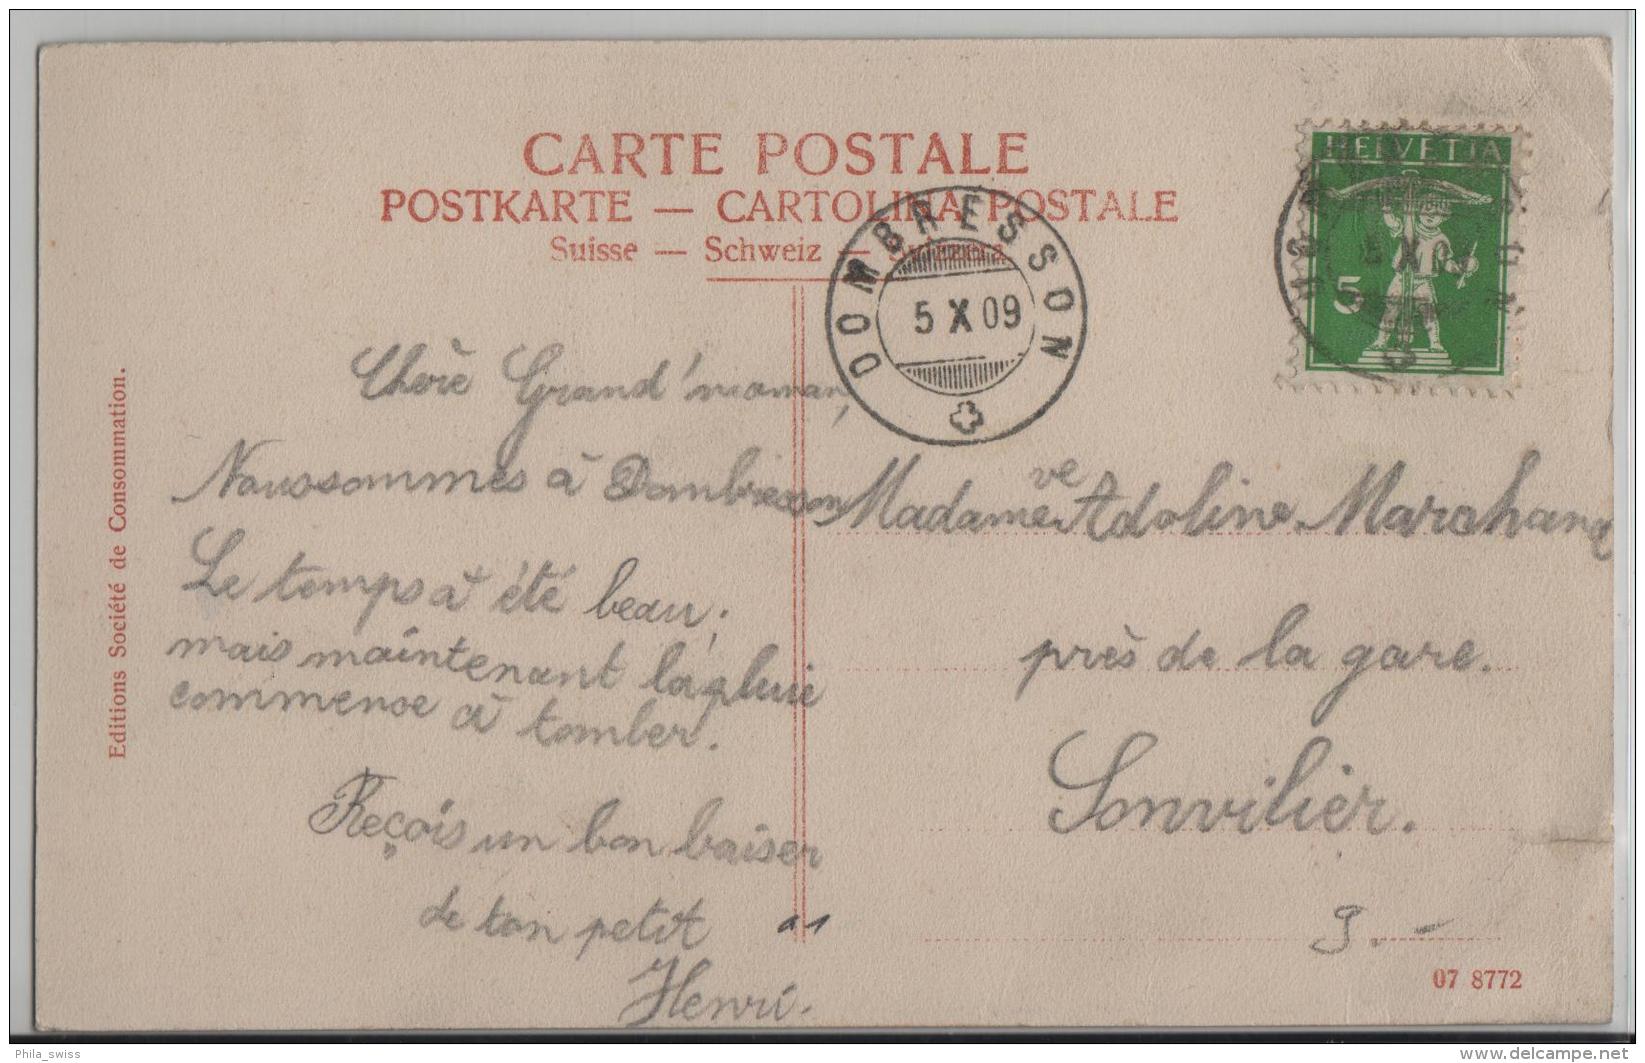 CARTE POSTALE
POSTKARTE — CARTOLINA POSTALE
Suisse — Schweiz — Svizzera
HELVETIA
5
5 X 09
DOMBRESSON
5 X 09
Editions Société de Consommation.
Chère Grand'maman,
Nous sommes à Dombresson
Le temps a été beau;
mais maintenant la pluie
commence à tomber.
Reçois un bon baiser
de ton petit
Henri.
Madame ve Adeline Marchand
près de la gare.
Sonvilier.
9.-
07 8772
Phila_swiss
delcampe.net